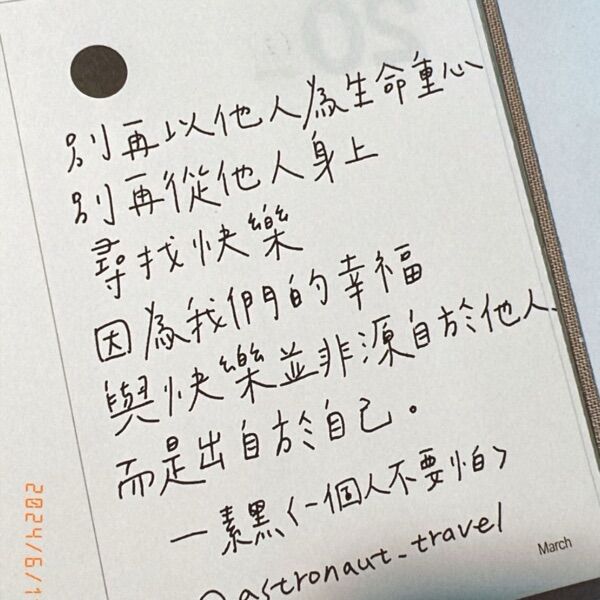 別再以他人為生命重心
別再從他人身上
尋找快樂
因為我們的幸福
與快樂並非源自於他人
而是出自於自己。
—素黑〈一個人不要怕〉
@astronaut_travel
March
2024/6/1